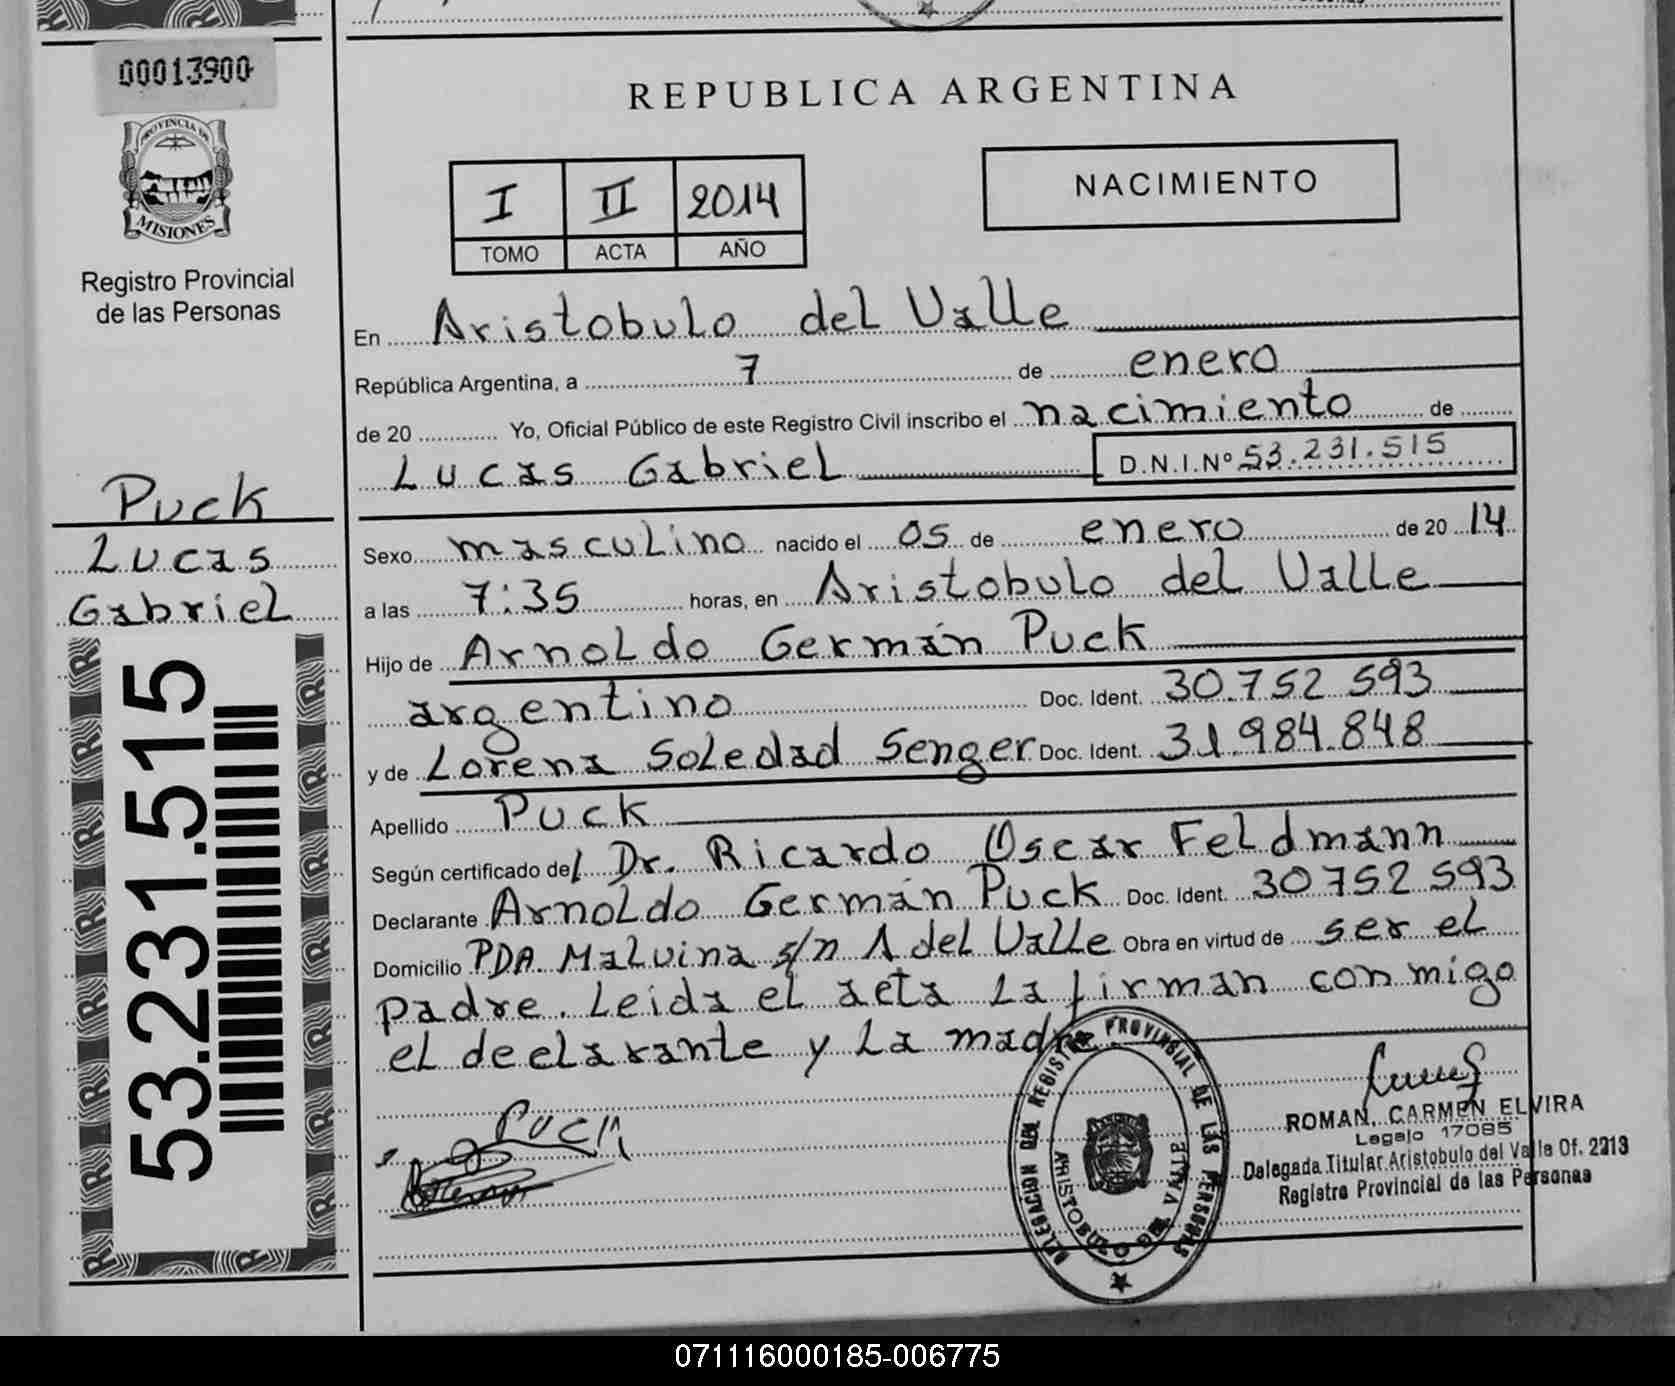 00013900
PROVINCIA DE
MISIONES
Registro Provincial
de las Personas
Puck
Lucas
Gabriel
53.231.515
REPUBLICA ARGENTINA
I II 2014
TOMO ACTA AÑO
NACIMIENTO
En Aristobulo del Valle
República Argentina, a 7 de enero
de 20 Yo, Oficial Público de este Registro Civil inscribo el nacimiento de
Lucas Gabriel D.N.I.Nº 53.231.515
Sexo masculino nacido el 05 de enero de 20 14
a las 7:35 horas, en Aristobulo del Valle
Hijo de Arnoldo Germán Puck
argentino Doc. Ident. 30.752.593
y de Lorena Soledad Senger Doc. Ident. 31.984.848
Apellido Puck
Según certificado del Dr. Ricardo Oscar Feldmann
Declarante Arnoldo Germán Puck Doc. Ident. 30752593
Domicilio PDA. Malvina s/n A del Valle Obra en virtud de ser el
padre. Leida el acta la firman conmigo
el declarante y la madre.
PUCK
DELEGACION DEL REGISTRO PROVINCIAL DE LAS PERSONAS
ARISTOBULO DEL VALLE
ROMAN, CARMEN ELVIRA
Legajo 17085
Delegada Titular Aristobulo del Valle Of. 2213
Registro Provincial de las Personas
071116000185-006775